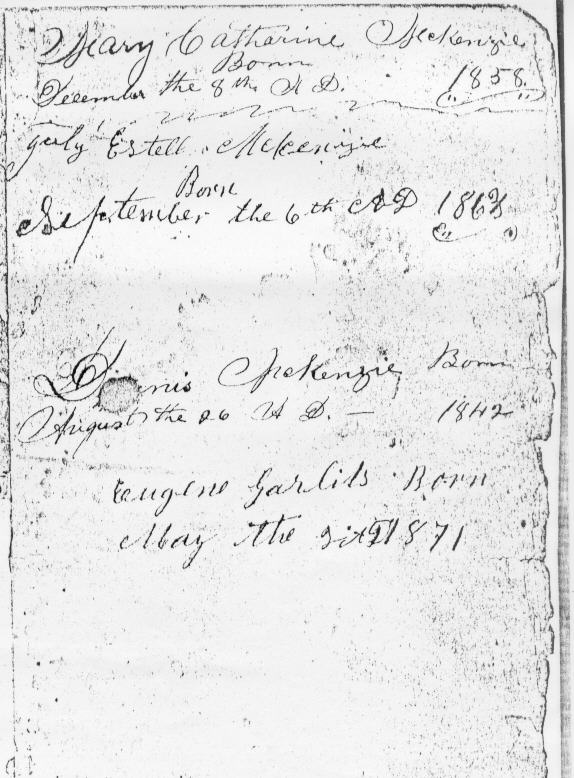 Mary Catharine McKenzie
Born
December the 8th A D. 1858.
July Estell McKenzie
Born
September the 6th AD 1863
Dennis McKenzie Born
August the 26 A D. — 1842
Eugene Garlits Born
May the 1871